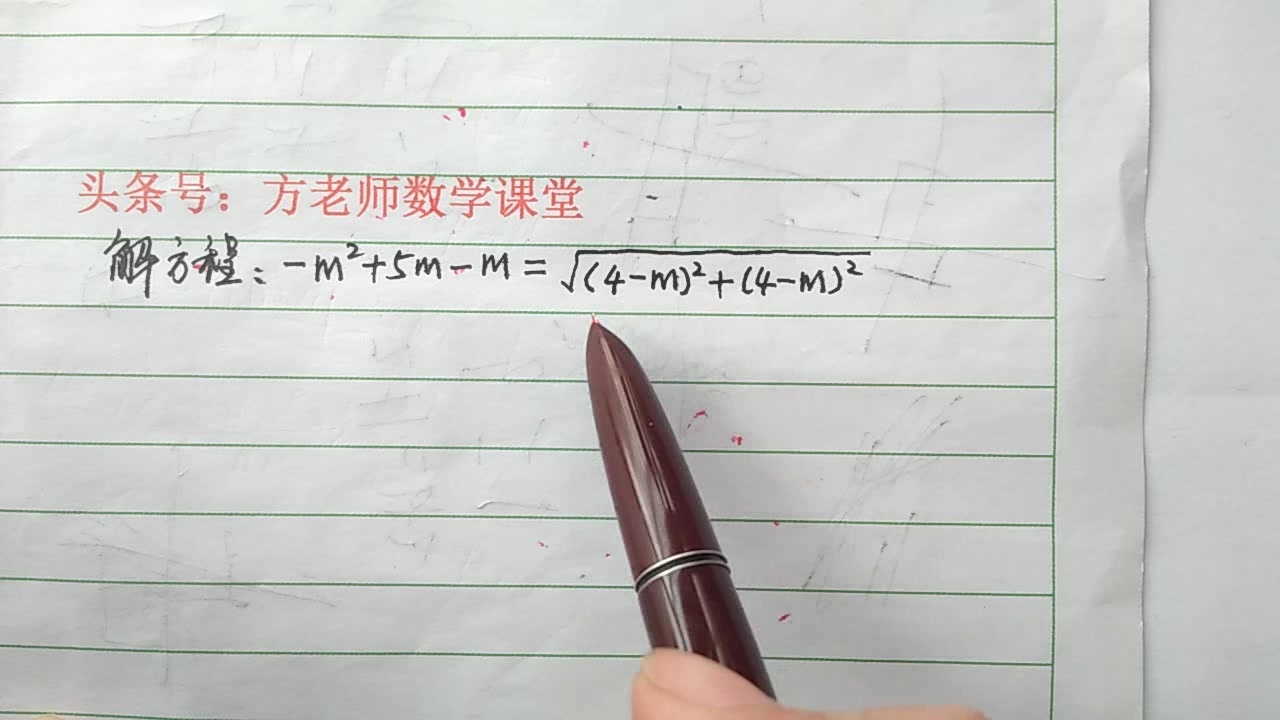 头条号：方老师数学课堂
解方程：-m²+5m-m=√((4-m)²+(4-m)²)